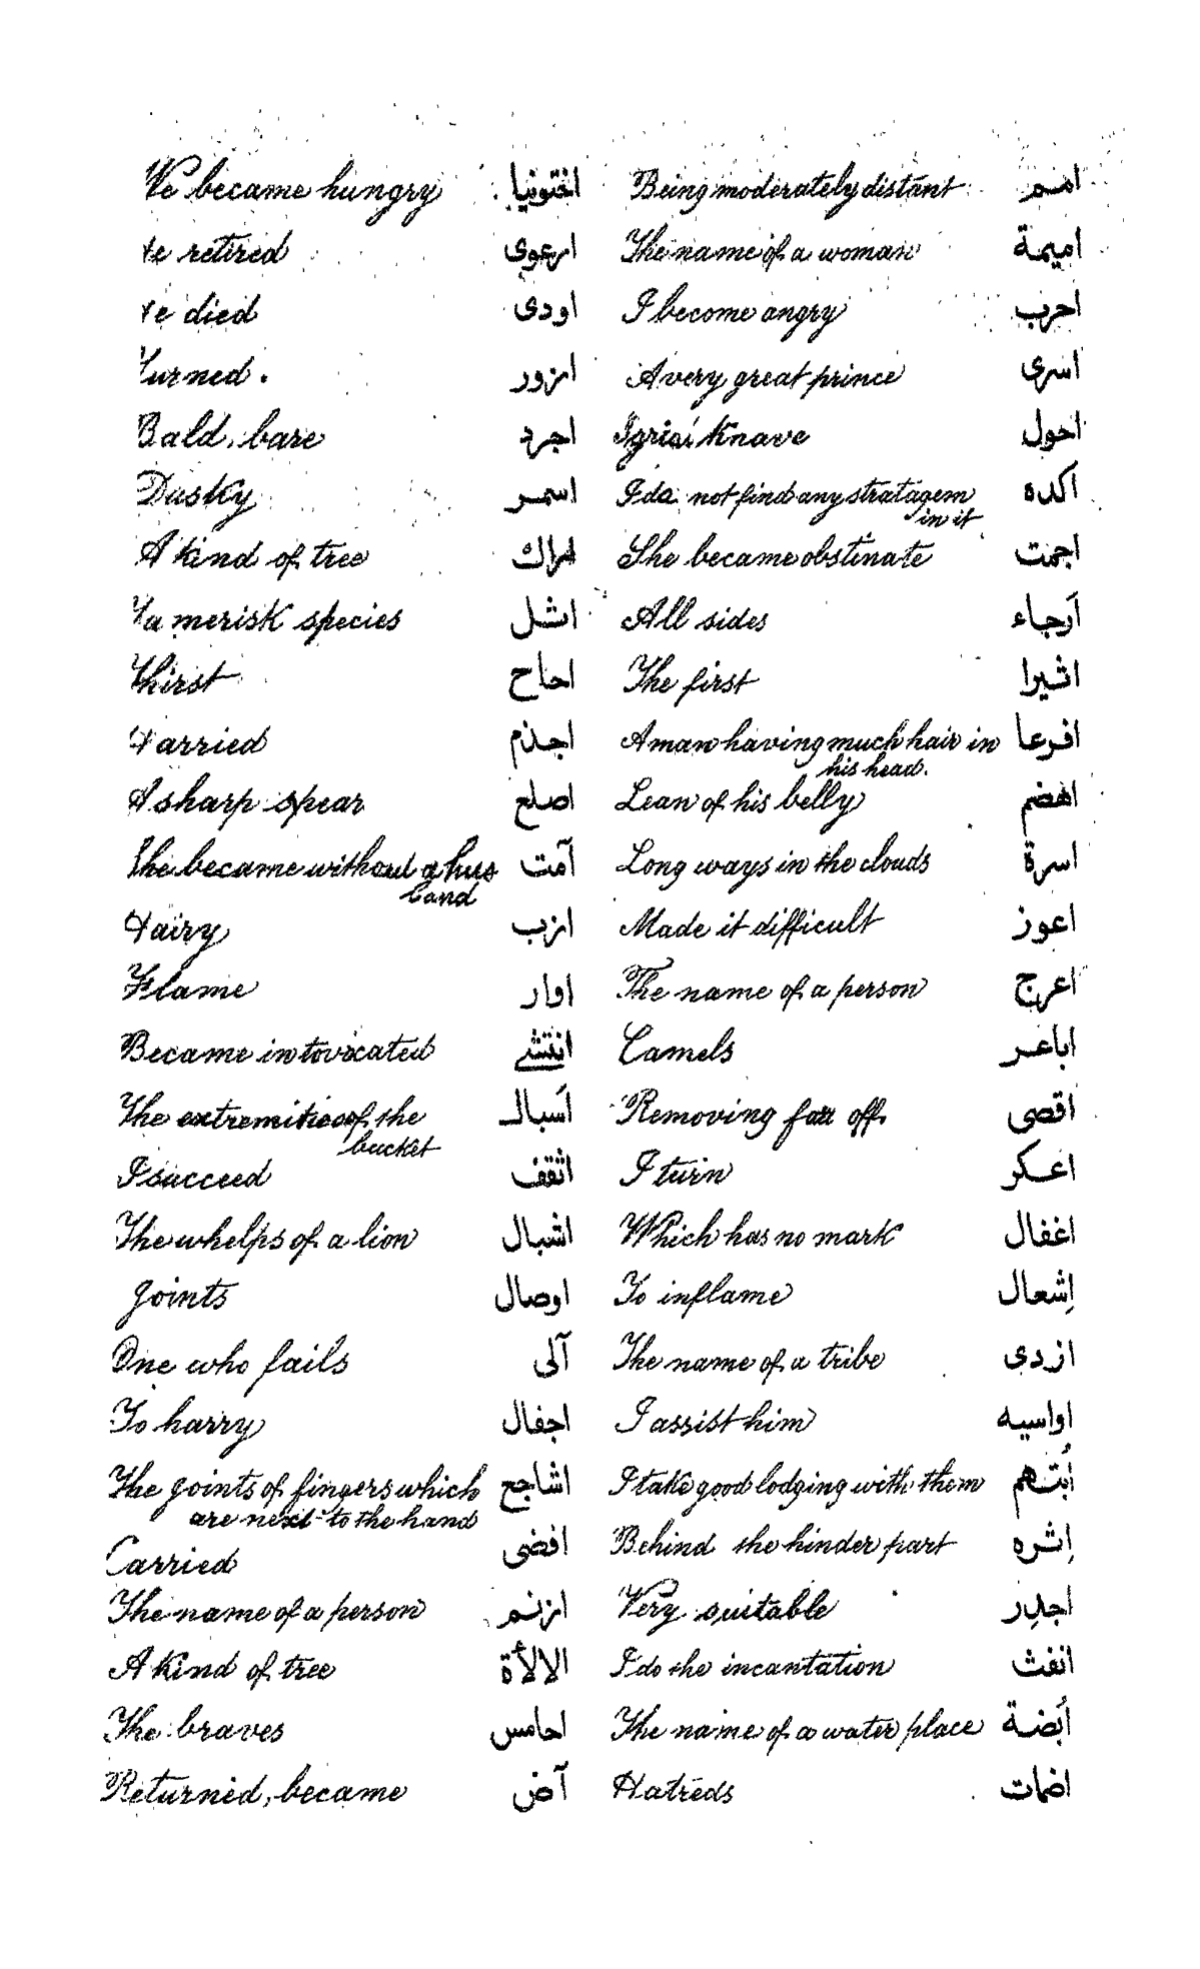 We became hungry اختونیا Being moderately distant امم
He retired ارعوى The name of a woman اميمة
He died اودى I become angry احرب
Turned. ازور A very great prince اسرى
Bald, bare اجرد Knave احول
Dusky اسمر I do not find any stratagem اكده
in it
A kind of tree اراك She became obstinate اجمت
Ta merisk species اشل All sides أرجاء
Thirst احاح The first اثيرا
Harried اجذم A man having much hair in افرعا
his head.
A sharp spear اصلع Lean of his belly اهضم
She became without a hus آمت Long ways in the clouds اسرة
band
Hairy ازب Made it difficult اعوز
Flame اوار The name of a person اعرج
Became intoxicated انتشے Camels اباعر
The extremities of the أسبال Removing far off اقصى
bucket
I succeed اثقف I turn اعكر
The whelps of a lion اشبال Which has no mark اغفال
Joints اوصال To inflame إشعال
One who fails آلى The name of a tribe ازدى
To harry اجفال I assist him اواسيه
The joints of fingers which اشاجع I take good lodging with them أبتهم
are next to the hand
Carried افضى Behind the hinder part إثره
The name of a person ازنم Very suitable اجدر
A kind of tree الالأة I do the incantation انفث
The braves احامس The name of a water place أبضة
Returned, became آض Hatreds اضمات